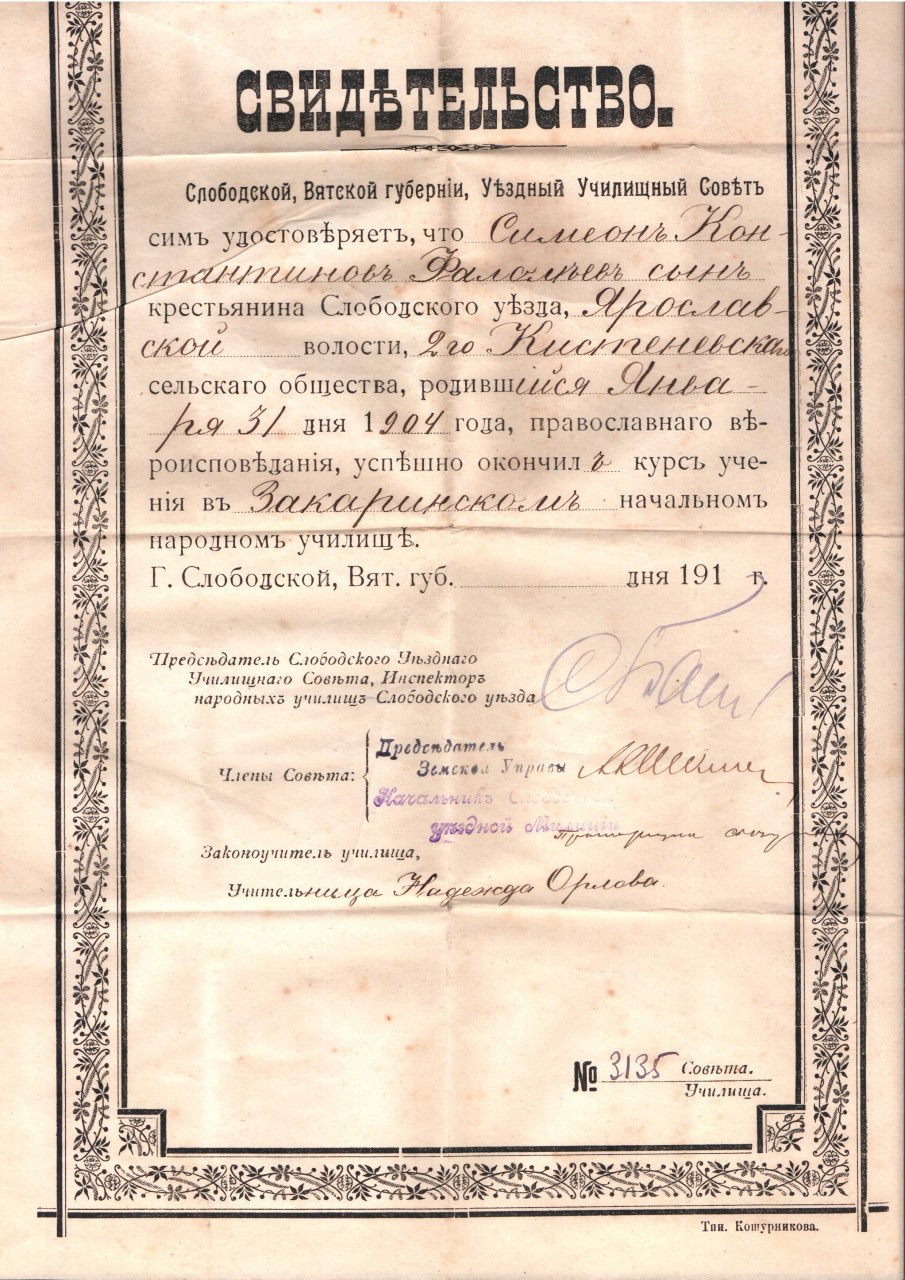 СВИДѢТЕЛЬСТВО.
Слободской, Вятской губерніи, Уѣздный Училищный Совѣтъ
симъ удостовѣряетъ, что Симеонъ Кон-
стантиновъ Фаломѣевъ сынъ
крестьянина Слободского уѣзда, Ярослав-
ской волости, 2го Кистеневскаго
сельскаго общества, родившійся Янва-
ря 31 дня 1904 года, православнаго вѣ-
роисповѣданія, успѣшно окончилъ курсъ уче-
нія въ Закаринскомъ начальномъ
народномъ училищѣ.
Г. Слободской, Вят. губ. дня 191 г.
Предсѣдатель Слободского Уѣзднаго
Училищнаго Совѣта, Инспекторъ
народныхъ училищъ Слободского уѣзда
Предсѣдатель
Члены Совѣта: Земской Управы
Начальникъ
уѣздной Милиціи
Законоучитель училища,
Учительница Надежда Орлова.
№ 3135 Совѣта.
Училища.
Тип. Кошурникова.